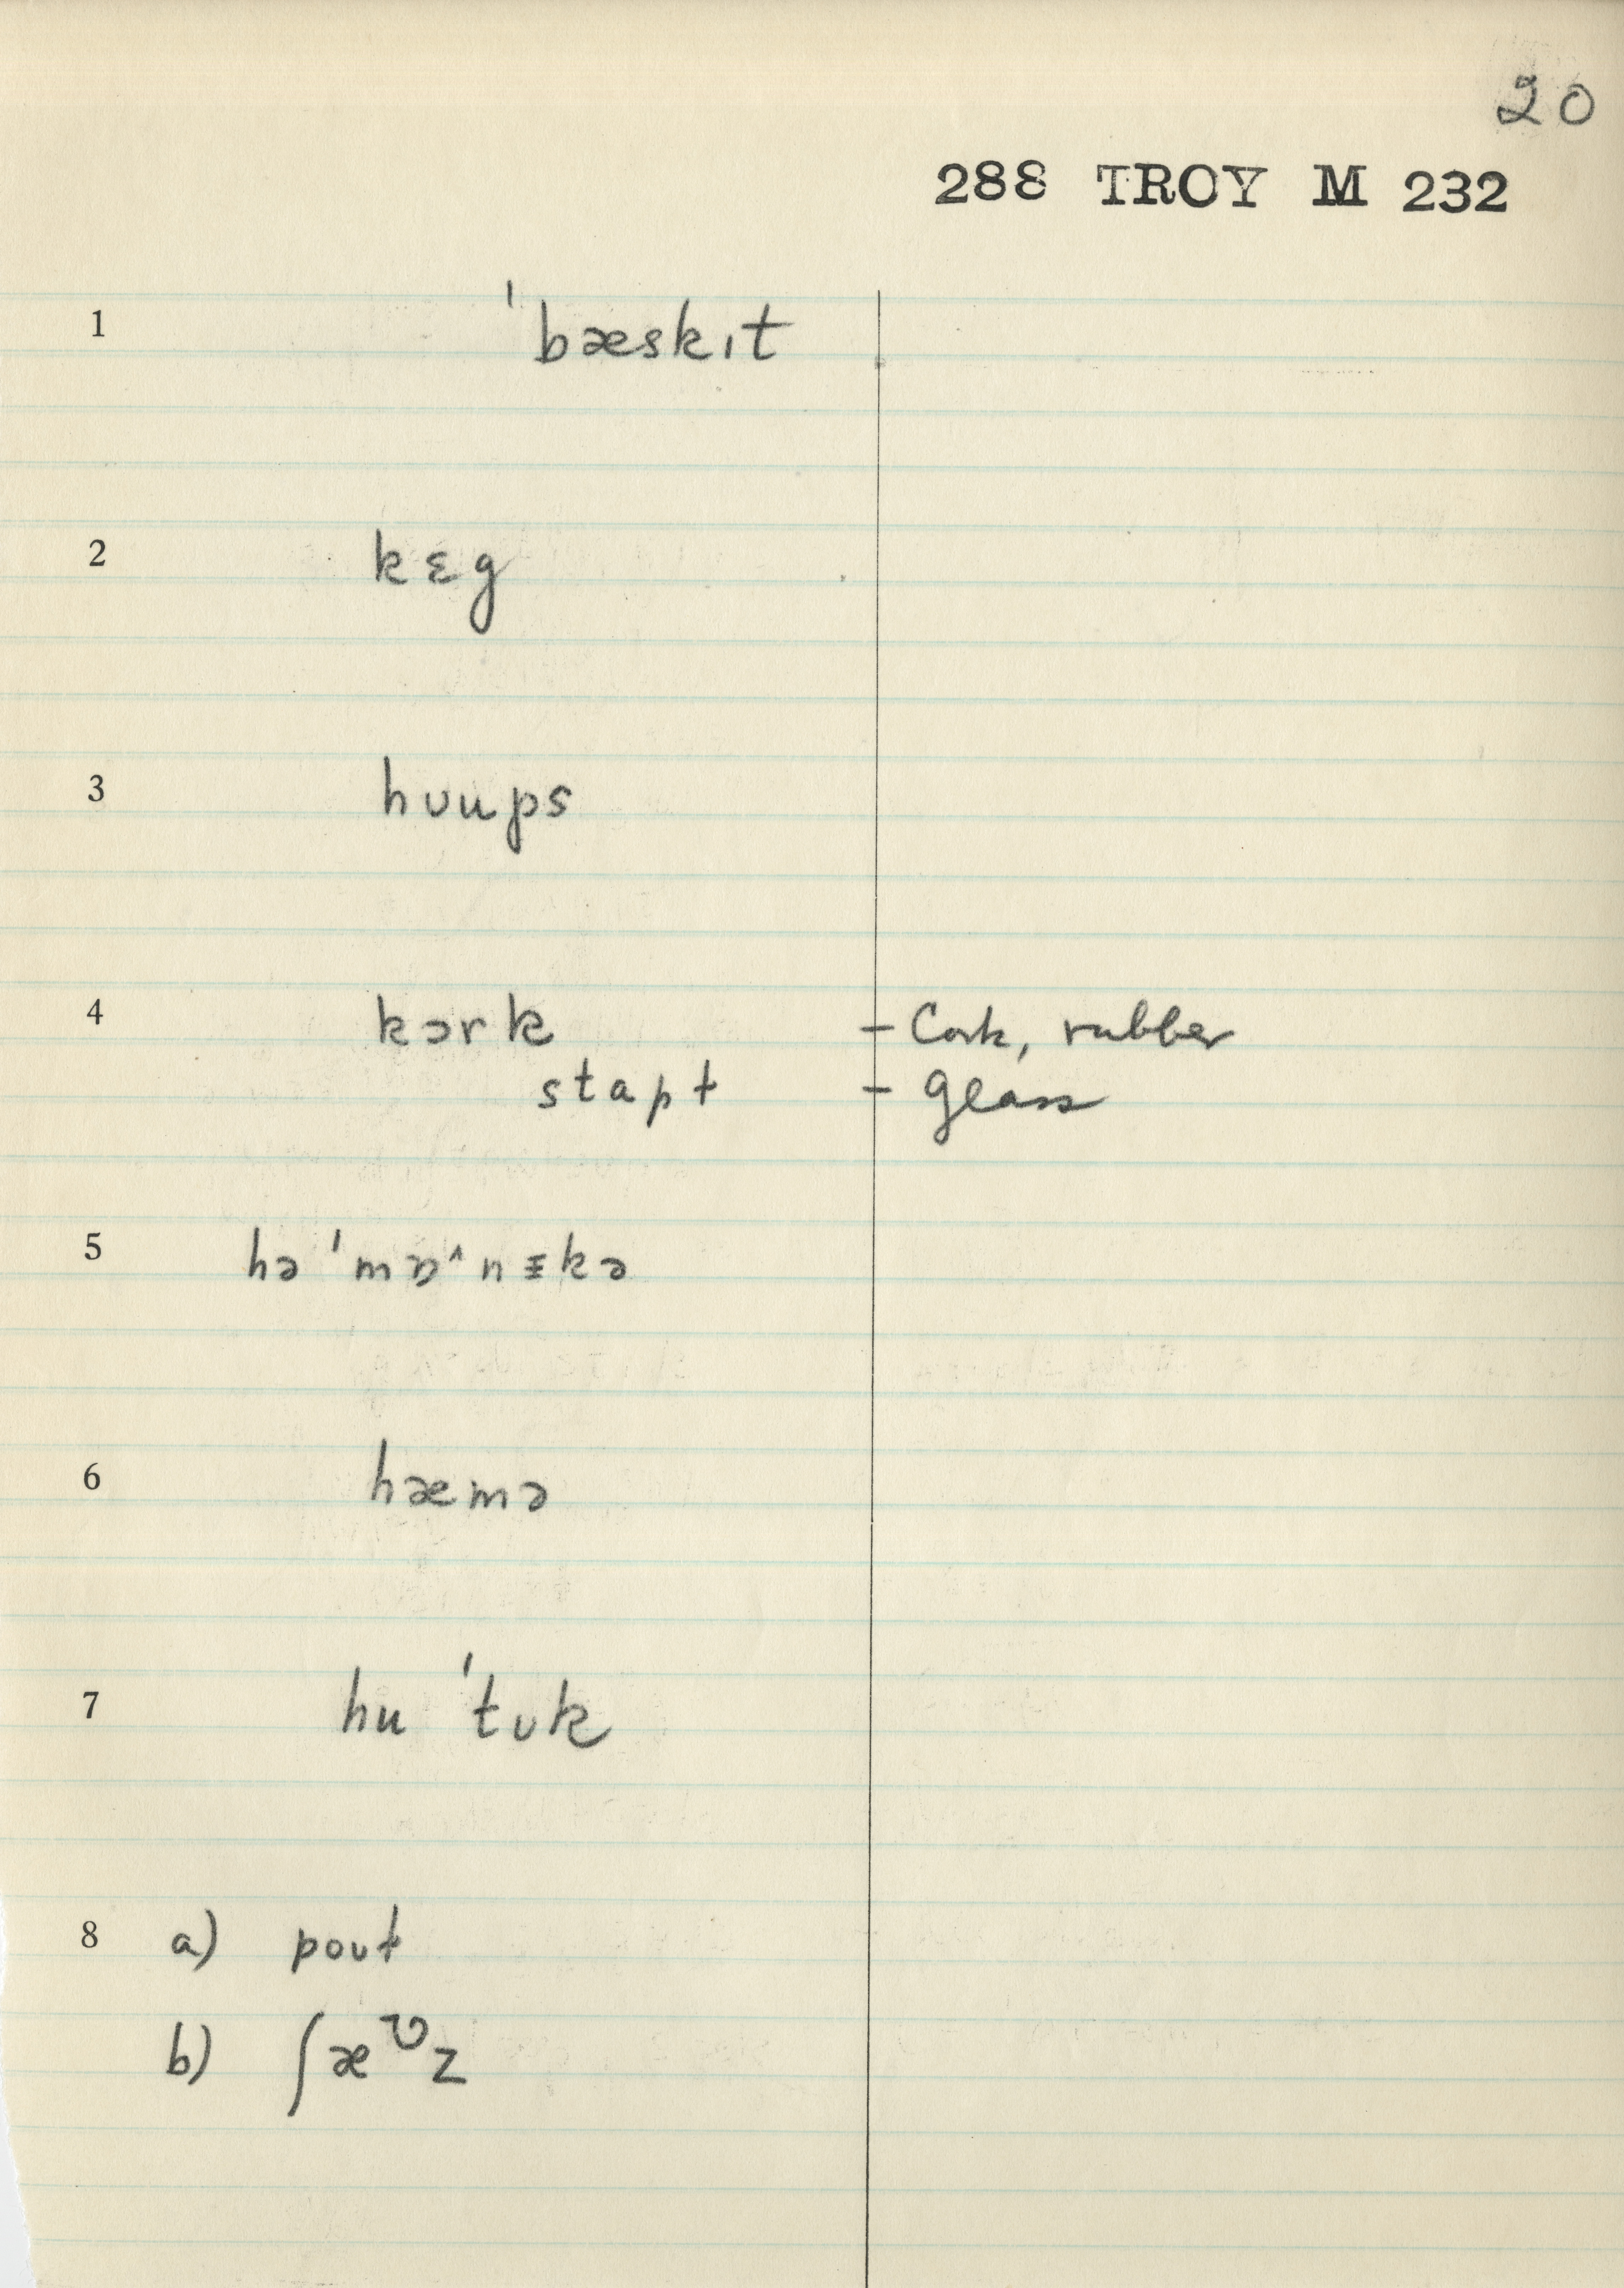 20
288 TROY M 232
1 ˈbæskɪt
2 kɛg
3 hʊups
4 kɔrk – Cork, rubber
stapt – glass
5 hə ˈmɒ˄nɪkə
6 hæmə
7 hu ˈtʊk
8 a) poʊt
b) ʃæᶷz